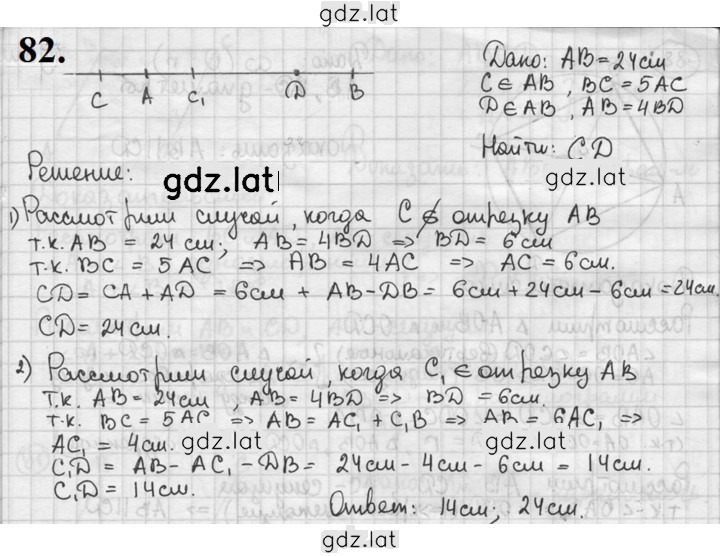 gdz.lat
82.
C A C₁ D B
Дано: AB = 24см
C ∈ AB, BC = 5AC
D ∈ AB, AB = 4BD
Найти: CD
Решение:
gdz.lat
1) Рассмотрим случай, когда C ∉ отрезку AB
т.к. AB = 24 см; AB = 4BD => BD = 6см
т.к. BC = 5AC => AB = 4AC => AC = 6см.
CD = CA + AD = 6см + AB - DB = 6см + 24см - 6см = 24см.
CD = 24см.
gdz.lat
2) Рассмотрим случай, когда C₁ ∈ отрезку AB
т.к. AB = 24см, AB = 4BD => BD = 6см.
т.к. BC = 5AC => AB = AC₁ + C₁B => AB = 6AC₁ =>
AC₁ = 4см.
gdz.lat
C₁D = AB - AC₁ - DB = 24см - 4см - 6см = 14см.
C₁D = 14см.
Ответ: 14см; 24см.
gdz.lat